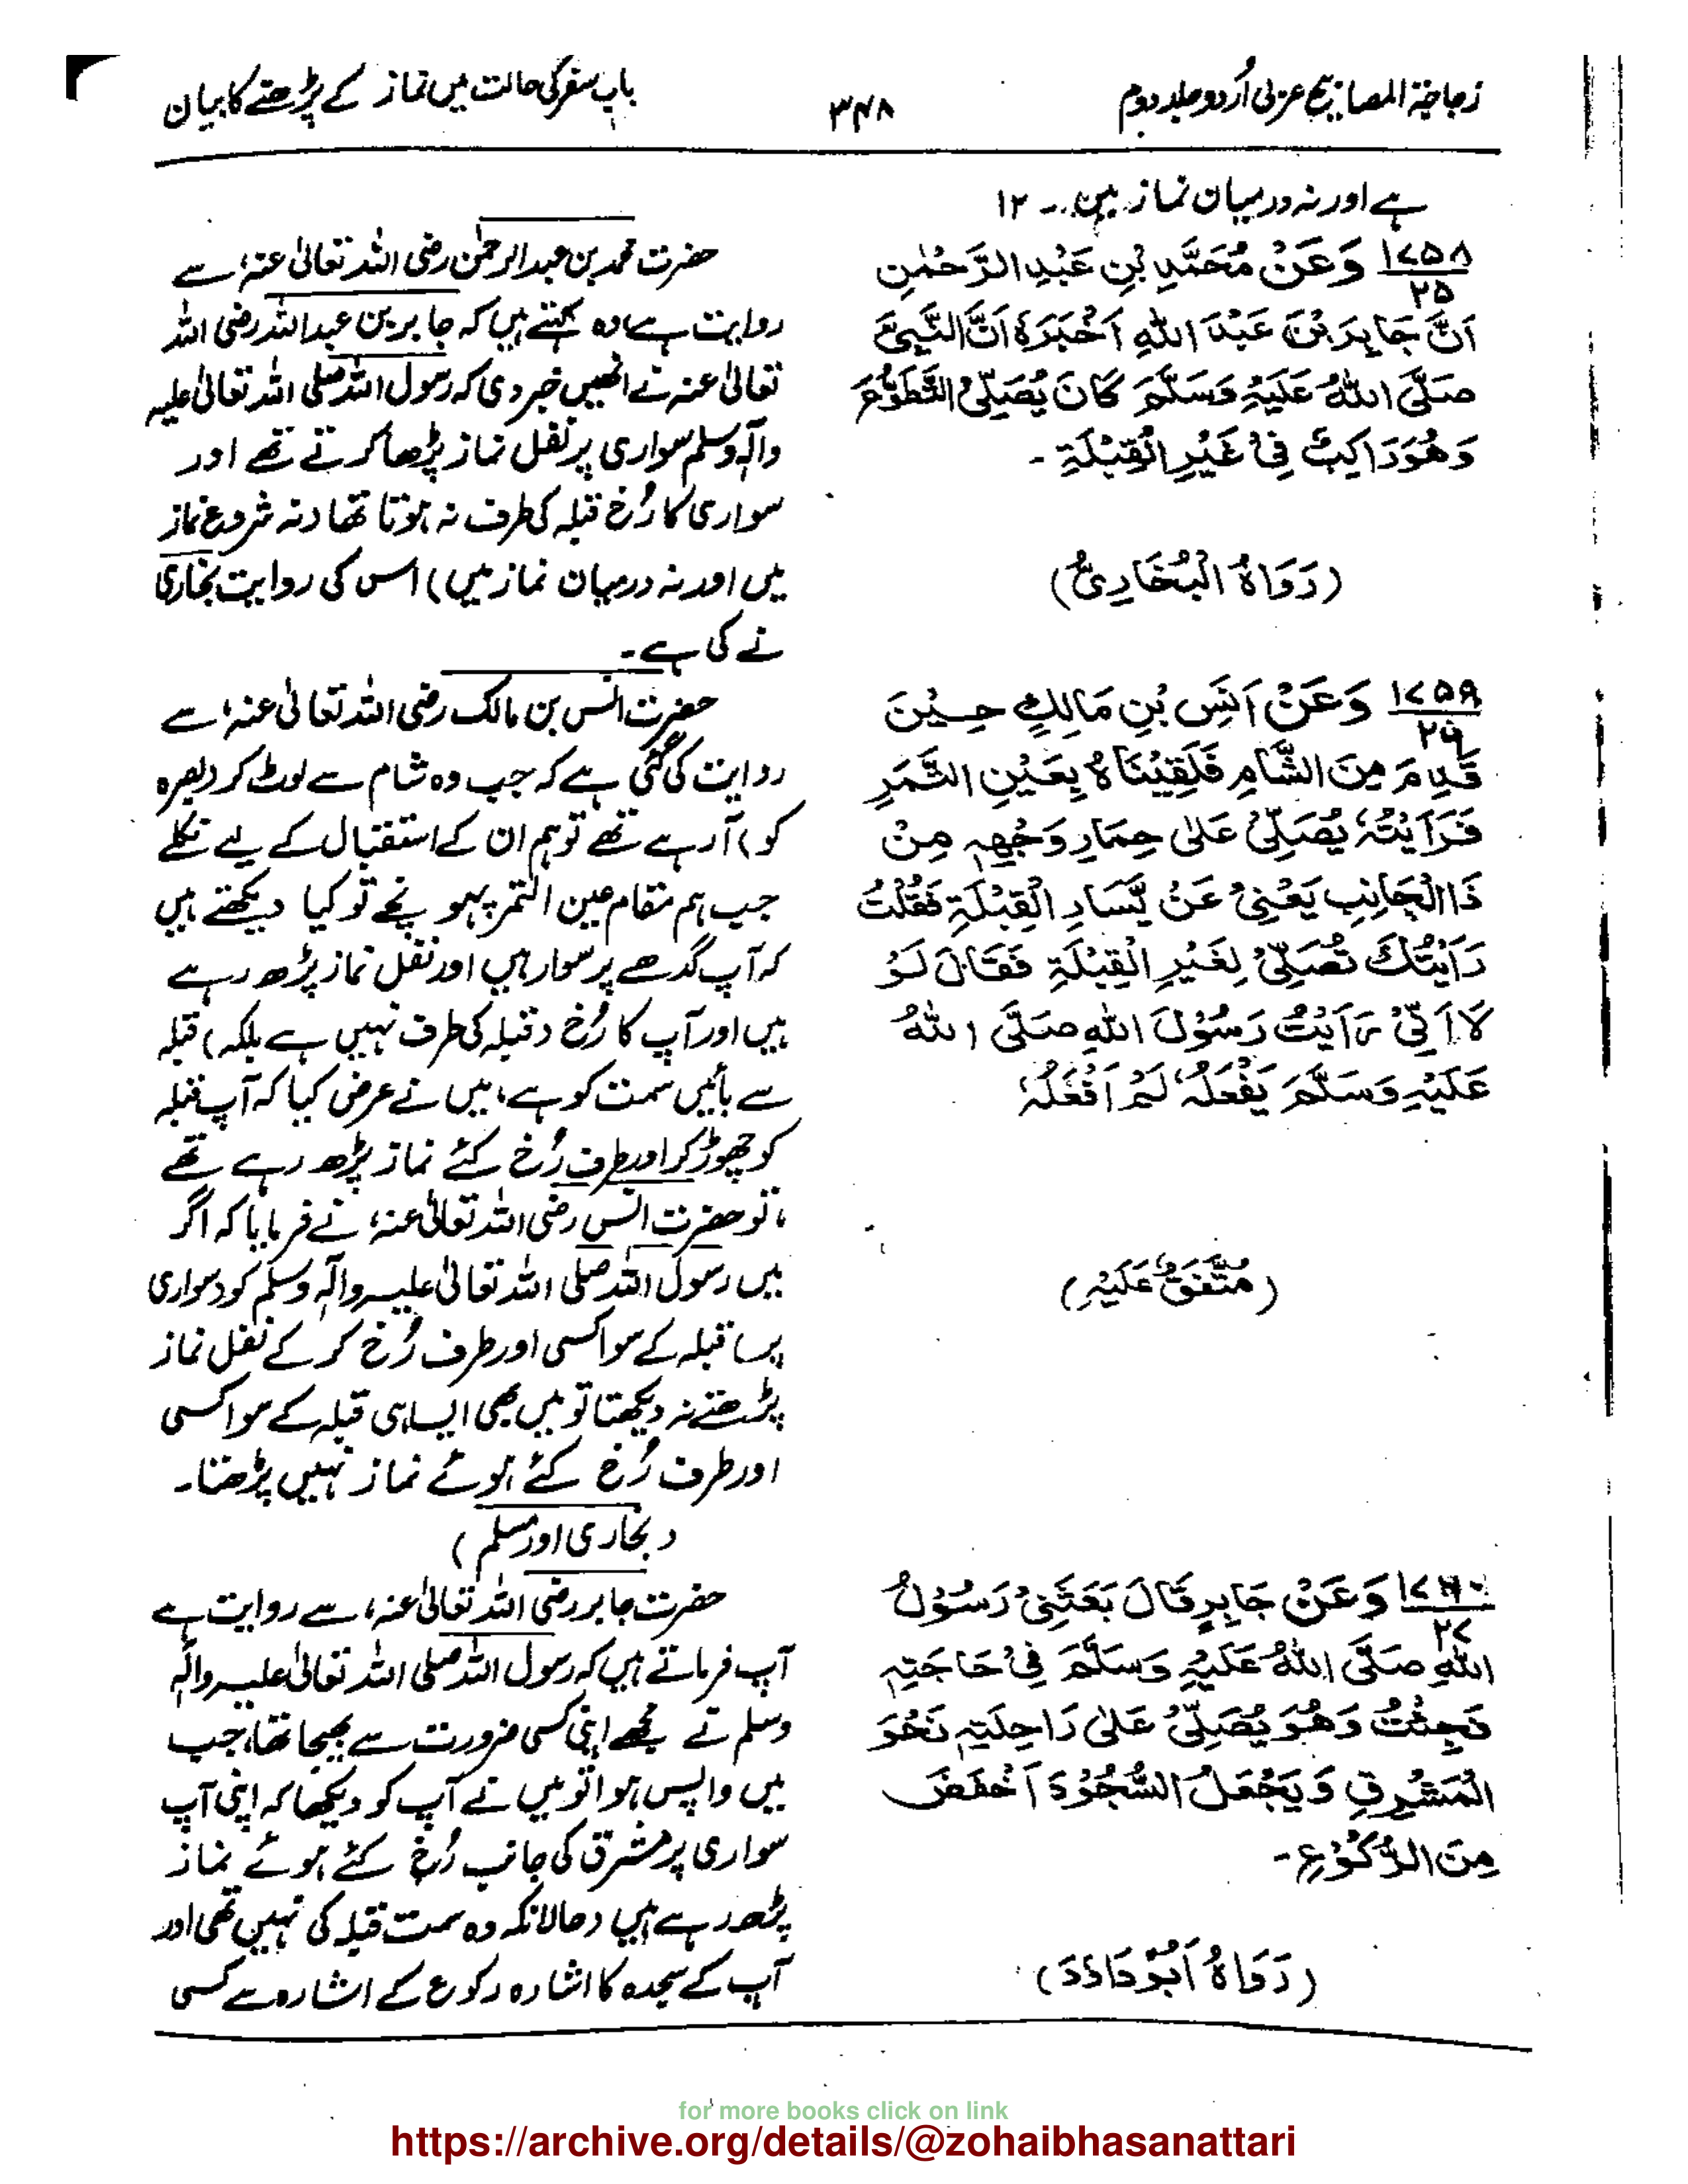 زجاجۃ المصابیح عربی اُردو جلد دوم
۳۴۸
باب سفر کی حالت میں نماز کے پڑھنے کا بیان
ہے اور نہ درمیان نماز میں ۔۔ ۱۲
۱۷۵۸/۲۵ وَعَنْ مُحَمَّدِ بْنِ عَبْدِ الرَّحْمٰنِ
اَنَّ جَابِرَ بْنَ عَبْدَ اللهِ اَخْبَرَهٗ اَنَّ النَّبِيَّ
صَلَّى اللهُ عَلَيْهِ وَسَلَّمَ كَانَ يُصَلِّي التَّطَوُّعَ
وَهُوَ رَاكِبٌ فِيْ غَيْرِ الْقِبْلَةِ ۔
(رَوَاهُ الْبُخَارِيُّ)
حضرت محمد بن عبد الرحمٰن رضی اللہ تعالیٰ عنہ، سے
روایت ہے وہ کہتے ہیں کہ جابر بن عبد اللہ رضی اللہ
تعالیٰ عنہ نے انھیں خبر دی کہ رسول اللہ صلی اللہ تعالیٰ علیہ
وآلہٖ وسلم سواری پر نفل نماز پڑھا کرتے تھے اور
سواری کا رُخ قبلہ کی طرف نہ ہوتا تھا (نہ شروع نماز
میں اور نہ درمیان نماز میں) اس کی روایت بخاری
نے کی ہے ۔
۱۷۵۹/۲۶ وَعَنْ اَنَسِ بْنِ مَالِكٍ حِيْنَ
قَدِمَ مِنَ الشَّامِ فَلَقِيْنَاهُ بِعَيْنِ التَّمَرِ
فَرَاَيْتُهٗ يُصَلِّيْ عَلٰى حِمَارٍ وَجْهِهٖ مِنْ
ذَا الْجَانِبِ يَعْنِيْ عَنْ يَّسَارِ الْقِبْلَةِ فَقُلْتُ
رَاَيْتُكَ تُصَلِّيْ لِغَيْرِ الْقِبْلَةِ فَقَالَ لَوْ
لَا اَنِّيْ رَاَيْتُ رَسُوْلَ اللهِ صَلَّى اللهُ
عَلَيْهِ وَسَلَّمَ يَفْعَلُهٗ لَمْ اَفْعَلْهُ
(مُتَّفَقٌ عَلَيْهِ)
حضرت انس بن مالک رضی اللہ تعالیٰ عنہ، سے
روایت کی گئی ہے کہ جب وہ شام سے لوٹ کر (بصرہ
کو) آرہے تھے تو ہم ان کے استقبال کے لیے نکلے
جب ہم مقام عین التمر پہو نچے تو کیا دیکھتے ہیں
کہ آپ گدھے پر سوار ہیں اور نفل نماز پڑھ رہے
ہیں اور آپ کا رُخ (قبلہ کی طرف نہیں ہے بلکہ) قبلہ
سے بائیں سمت کو ہے، میں نے عرض کیا کہ آپ قبلہ
کو چھوڑ کر اور طرف رُخ کئے نماز پڑھ رہے تھے
، تو حضرت انس رضی اللہ تعالیٰ عنہ، نے فرمایا کہ اگر
میں رسول اللہ صلی اللہ تعالیٰ علیہ وآلہٖ وسلم کو (سواری
پر) قبلہ کے سوا کسی اور طرف رُخ کر کے نفل نماز
پڑھتے نہ دیکھتا تو میں بھی ایسا ہی قبلہ کے سوا کسی
اور طرف رُخ کئے ہوئے نماز نہیں پڑھتا۔
(بخاری اور مسلم)
۱۷۶۰/۲۷ وَعَنْ جَابِرٍ قَالَ بَعَثَنِيْ رَسُوْلُ
اللهِ صَلَّى اللهُ عَلَيْهِ وَسَلَّمَ فِيْ حَاجَتِهٖ
فَجِئْتُ وَهُوَ يُصَلِّيْ عَلٰى رَاحِلَتِهٖ نَحْوَ
الْمَشْرِقِ وَيَجْعَلُ السُّجُوْدَ اَخْفَضَ
مِنَ الرُّكُوْعِ ۔
(رَوَاهُ اَبُوْ دَاوٗدَ)
حضرت جابر رضی اللہ تعالیٰ عنہ، سے روایت ہے
آپ فرماتے ہیں کہ رسول اللہ صلی اللہ تعالیٰ علیہ وآلہٖ
وسلم نے مجھے اپنی کسی ضرورت سے بھیجا تھا، جب
میں واپس ہوا تو میں نے آپ کو دیکھا کہ اپنی آپ
سواری پر مشرق کی جانب رُخ کئے ہوئے نماز
پڑھ رہے ہیں (حالانکہ وہ سمت قبلہ کی نہیں تھی اور
آپ کے سجدہ کا اشارہ رکوع کے اشارہ سے کسی
for more books click on link
https://archive.org/details/@zohaibhasanattari